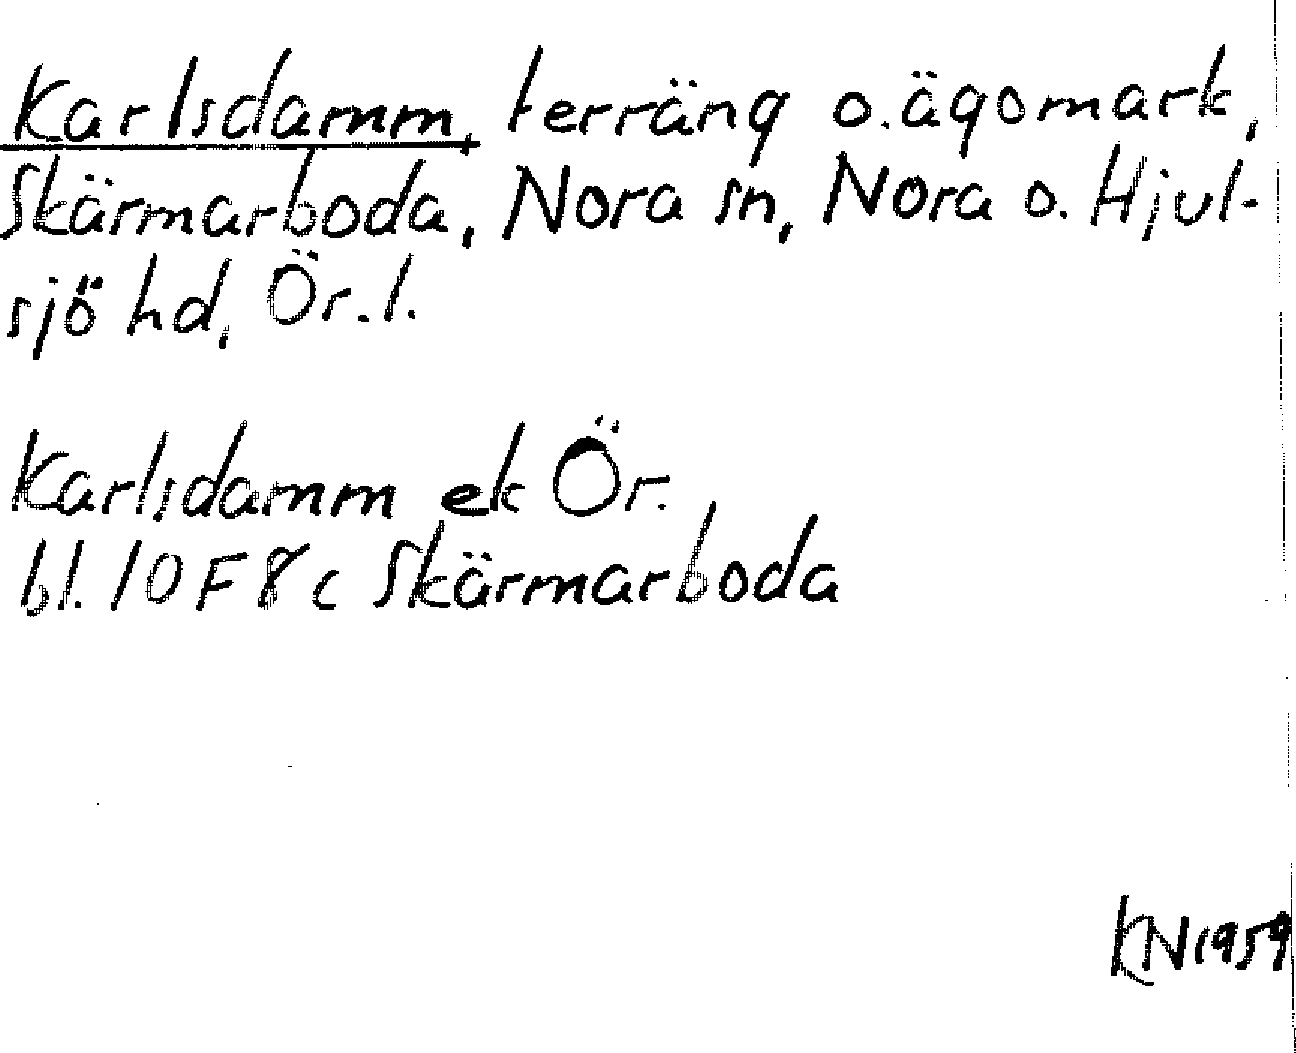 Karlsdamm, terräng o. ägomark,
Skärmarboda, Nora sn, Nora o. Hjul-
sjö hd, Ör. l.
Karlsdamm ek Ör.
bl. 10 F 8 c Skärmarboda
KN 1959